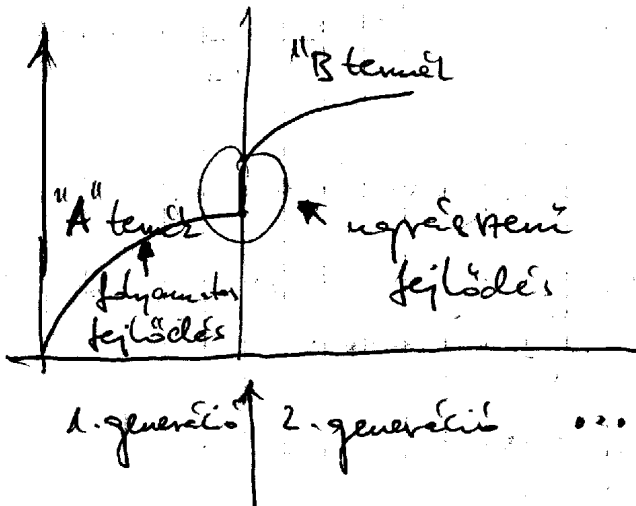 "B termék
"A" termék
ugrásszerű
fejlődés
folyamatos
fejlődés
1. generáció
2. generáció
...